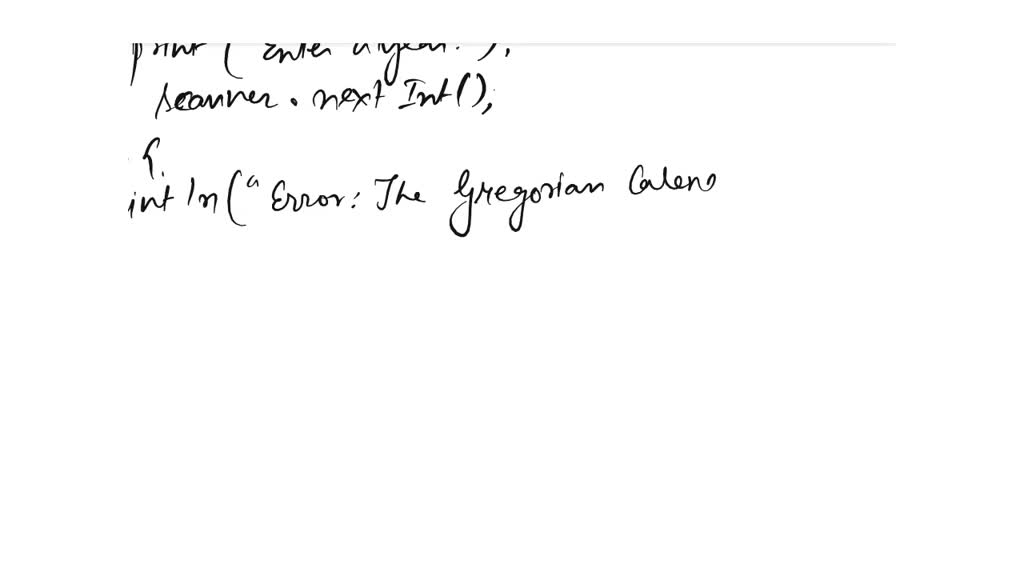 print ( Enter a year: );
scanner.next Int();
{
int ln ("Error: The Gregorian Calen